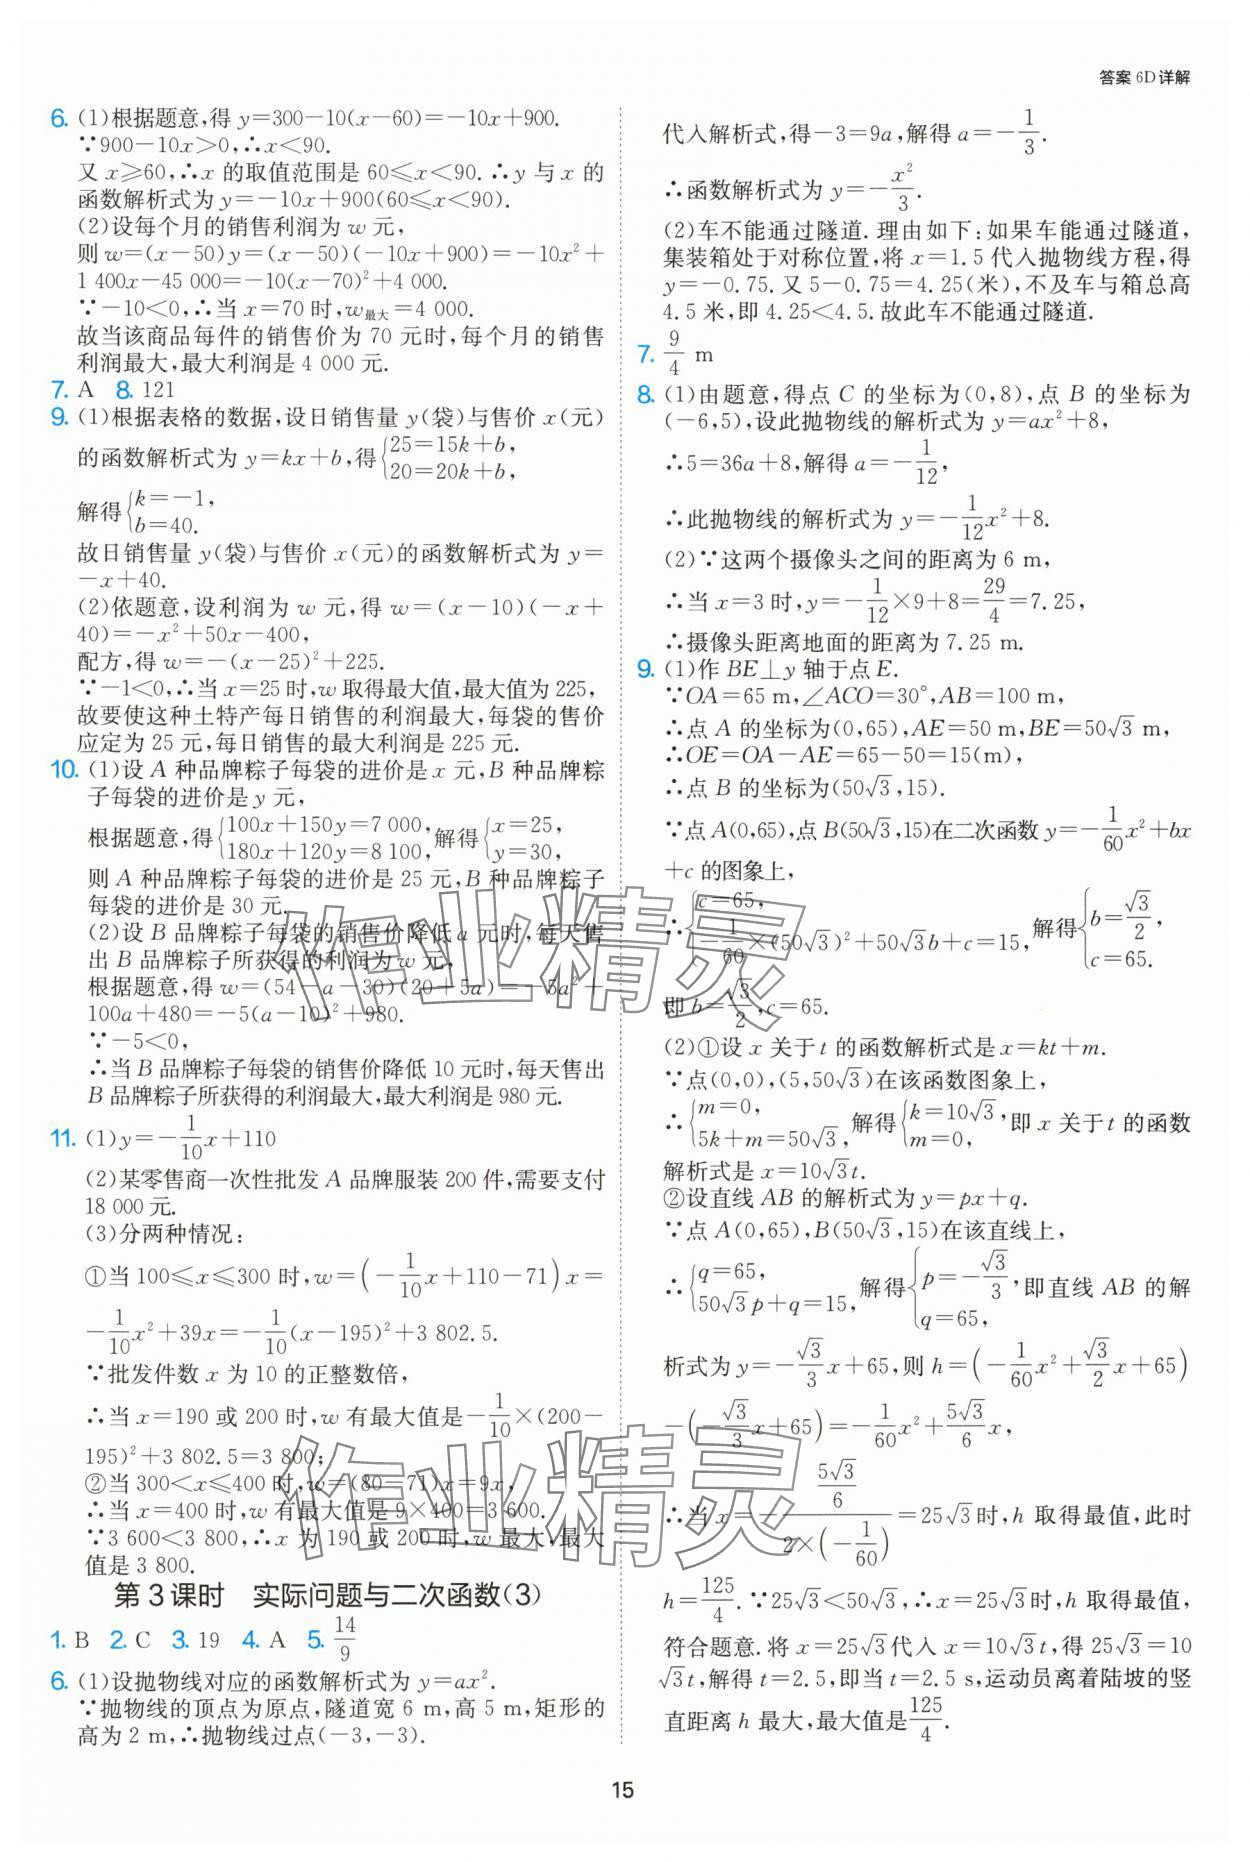 答案 6D详解
6. (1)根据题意,得 y=300-10(x-60)=-10x+900.
∵900-10x>0,∴x<90.
又 x≥60,∴x 的取值范围是 60≤x<90.∴y 与 x 的
函数解析式为 y=-10x+900(60≤x<90).
(2)设每个月的销售利润为 w 元,
则 w=(x-50)y=(x-50)(-10x+900)=-10x²+
1 400x-45 000=-10(x-70)²+4 000.
∵-10<0,∴当 x=70 时,w最大=4 000.
故当该商品每件的销售价为 70 元时,每个月的销售
利润最大,最大利润是 4 000 元.
7. A 8. 121
9. (1)根据表格的数据,设日销售量 y(袋)与售价 x(元)
的函数解析式为 y=kx+b,得{25=15k+b, 20=20k+b,
解得{k=-1, b=40.
故日销售量 y(袋)与售价 x(元)的函数解析式为 y=
-x+40.
(2)依题意,设利润为 w 元,得 w=(x-10)(-x+
40)=-x²+50x-400,
配方,得 w=-(x-25)²+225.
∵-1<0,∴当 x=25 时,w 取得最大值,最大值为 225,
故要使这种土特产每日销售的利润最大,每袋的售价
应定为 25 元,每日销售的最大利润是 225 元.
10. (1)设 A 种品牌粽子每袋的进价是 x 元,B 种品牌粽
子每袋的进价是 y 元,
根据题意,得{100x+150y=7 000, 180x+120y=8 100,解得{x=25, y=30,
则 A 种品牌粽子每袋的进价是 25 元,B 种品牌粽子
每袋的进价是 30 元.
(2)设 B 品牌粽子每袋的销售价降低 a 元时,每天售
出 B 品牌粽子所获得的利润为 w 元,
根据题意,得 w=(54-a-30)(20+5a)=-5a²+
100a+480=-5(a-10)²+980.
∵-5<0,
∴当 B 品牌粽子每袋的销售价降低 10 元时,每天售出
B 品牌粽子所获得的利润最大,最大利润是 980 元.
11. (1)y=-1/10x+110
(2)某零售商一次性批发 A 品牌服装 200 件,需要支付
18 000 元.
(3)分两种情况:
①当 100≤x≤300 时,w=(-1/10x+110-71)x=
-1/10x²+39x=-1/10(x-195)²+3 802.5.
∵批发件数 x 为 10 的正整数倍,
∴当 x=190 或 200 时,w 有最大值是-1/10×(200-
195)²+3 802.5=3 800;
②当 300<x≤400 时,w=(80-71)x=9x,
∴当 x=400 时,w 有最大值是 9×400=3 600.
∵3 600<3 800,∴x 为 190 或 200 时,w 最大,最大
值是 3 800.
第 3 课时 实际问题与二次函数(3)
1. B 2. C 3. 19 4. A 5. 14/9
6. (1)设抛物线对应的函数解析式为 y=ax².
∵抛物线的顶点为原点,隧道宽 6 m,高 5 m,矩形的
高为 2 m,∴抛物线过点(-3,-3).
代入解析式,得-3=9a,解得 a=-1/3.
∴函数解析式为 y=-x²/3.
(2)车不能通过隧道.理由如下:如果车能通过隧道,
集装箱处于对称位置,将 x=1.5 代入抛物线方程,得
y=-0.75. 又 5-0.75=4.25(米),不及车与箱总高
4.5 米,即 4.25<4.5. 故此车不能通过隧道.
7. 9/4 m
8. (1)由题意,得点 C 的坐标为(0,8),点 B 的坐标为
(-6,5),设此抛物线的解析式为 y=ax²+8,
∴5=36a+8,解得 a=-1/12,
∴此抛物线的解析式为 y=-1/12x²+8.
(2)∵这两个摄像头之间的距离为 6 m,
∴当 x=3 时,y=-1/12×9+8=29/4=7.25,
∴摄像头距离地面的距离为 7.25 m.
9. (1)作 BE⊥y 轴于点 E.
∵OA=65 m,∠ACO=30°,AB=100 m,
∴点 A 的坐标为(0,65),AE=50 m,BE=50√3 m,
∴OE=OA-AE=65-50=15(m),
∴点 B 的坐标为(50√3,15).
∵点 A(0,65),点 B(50√3,15)在二次函数 y=-1/60x²+bx
+c 的图象上,
∴{c=65, -1/60×(50√3)²+50√3b+c=15,解得{b=√3/2, c=65.
即 b=√3/2,c=65.
(2)①设 x 关于 t 的函数解析式是 x=kt+m.
∵点(0,0),(5,50√3)在该函数图象上,
∴{m=0, 5k+m=50√3,解得{k=10√3, m=0,即 x 关于 t 的函数
解析式是 x=10√3t.
②设直线 AB 的解析式为 y=px+q.
∵点 A(0,65),B(50√3,15)在该直线上,
∴{q=65, 50√3p+q=15,解得{p=-√3/3, q=65,即直线 AB 的解
析式为 y=-√3/3x+65,则 h=(-1/60x²+√3/2x+65)
-(-√3/3x+65)=-1/60x²+5√3/6x,
∴当 x=-(5√3/6)/(2×(-1/60))=25√3时,h 取得最值,此时
h=125/4.∵25√3<50√3,∴x=25√3时,h 取得最值,
符合题意.将 x=25√3代入 x=10√3t,得 25√3=10
√3t,解得 t=2.5,即当 t=2.5 s,运动员离着陆坡的竖
直距离 h 最大,最大值是125/4.
作业精灵
作业精灵
15